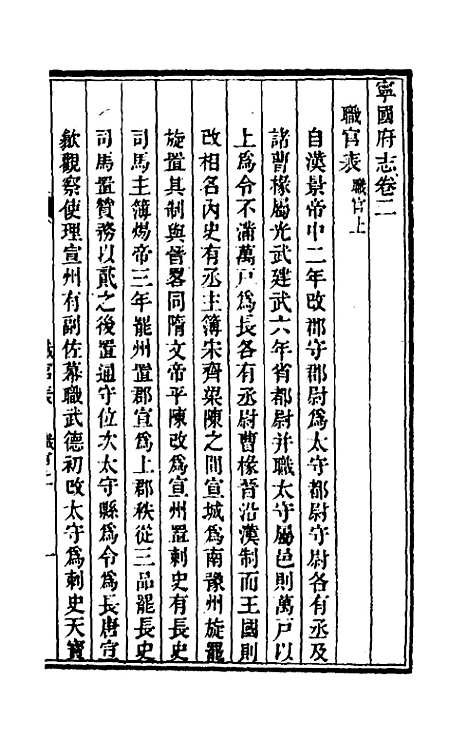 寧國府志卷二
職官表 職官上
自漢景帝中二年改郡守郡尉爲太守都尉守尉各有丞及
諸曹椽屬光武建武六年省都尉并職太守屬邑則萬戸以
上爲令不滿萬戸爲長各有丞尉曹椽晉沿漢制而王國則
改相名內史有丞主簿宋齊梁陳之間宣城爲南豫州旋罷
旋置其制與晉畧同隋文帝平陳改爲宣州置刺史有長史
司馬主簿煬帝三年罷州置郡宣爲上郡秩從三品罷長史
司馬置贊務以貳之後置通守位次太守縣爲令爲長唐宣
歙觀察使理宣州有副佐幕職武德初改太守爲刺史天寶